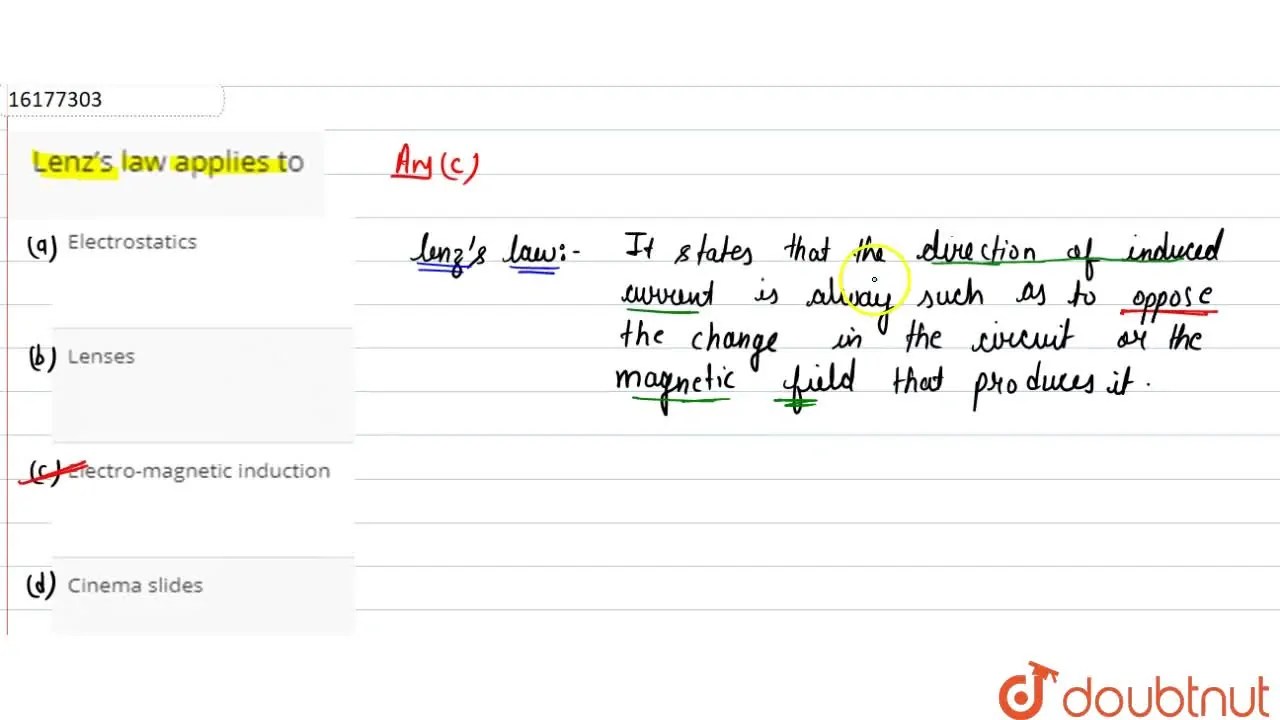 16177303
Lenz's law applies to
Ans (c)
(a) Electrostatics
Lenz's law:- It states that the direction of induced
current is alway such as to oppose
the change in the circuit or the
magnetic field that produces it.
(b) Lenses
(c) Electro-magnetic induction
(d) Cinema slides
doubtnut